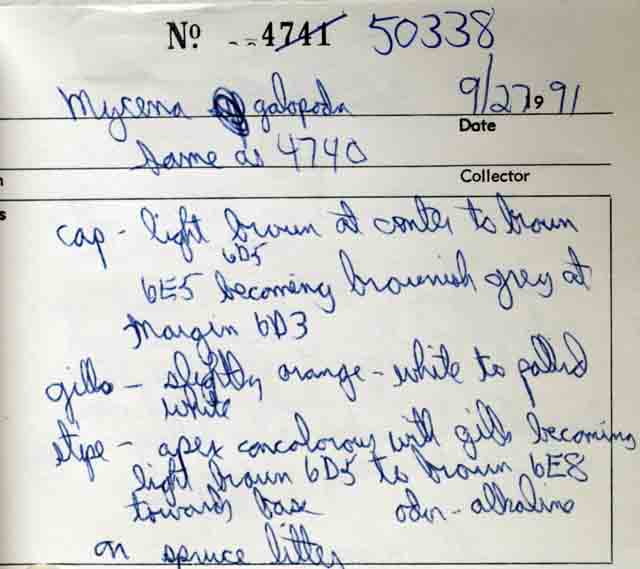 No --4741 50338
Mycena galopoda 9/27 19 91
Date
Same as 4740
Collector
cap - light brown at center to brown
6D5
6E5 becoming brownish grey at
margin 6D3
gills - slightly orange-white to pallid
white
stipe - apex concolorous with gills becoming
light brown 6D5 to brown 6E8
towards base odor - alkaline
on spruce litter